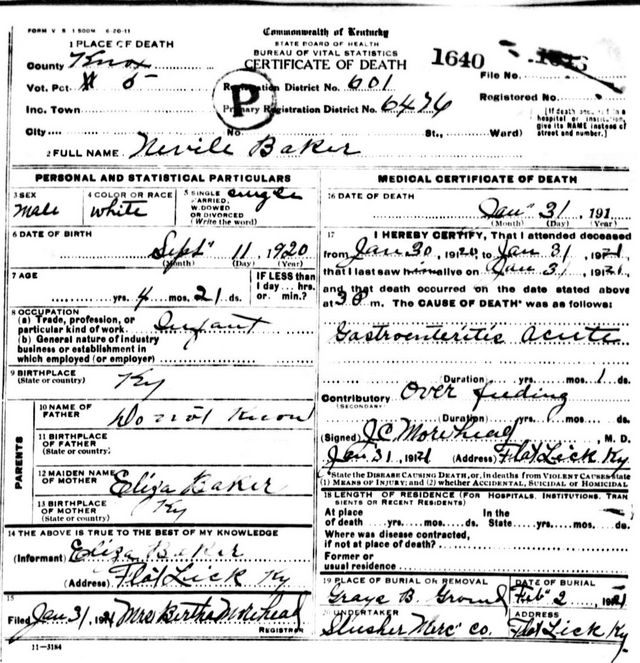 FORM V S 1 500M 6-20-11
Commonwealth of Kentucky
STATE BOARD OF HEALTH
BUREAU OF VITAL STATISTICS
CERTIFICATE OF DEATH
1640
1 PLACE OF DEATH
County Knox
Vot. Pct. # 5
Inc. Town
City No. St., Ward)
P
Registration District No. 601
Primary Registration District No. 6476
File No.
Registered No.
(If death occurred in a hospital or institution, give its NAME instead of street and number.)
2 FULL NAME Nevile Baker
PERSONAL AND STATISTICAL PARTICULARS
3 SEX Male
4 COLOR OR RACE white
5 SINGLE, MARRIED, WIDOWED OR DIVORCED (Write the word) Single
6 DATE OF BIRTH
Sept 11 1920
(Month) (Day) (Year)
7 AGE
yrs. 4 mos. 21 ds.
IF LESS than 1 day... hrs. or min.?
8 OCCUPATION
(a) Trade, profession, or particular kind of work. Infant
(b) General nature of industry business or establishment in which employed (or employer)
9 BIRTHPLACE
(State or country) Ky
PARENTS
10 NAME OF FATHER Do not Know
11 BIRTHPLACE OF FATHER (State or country)
12 MAIDEN NAME OF MOTHER Eliza Baker
13 BIRTHPLACE OF MOTHER (State or country) Ky
14 THE ABOVE IS TRUE TO THE BEST OF MY KNOWLEDGE
(Informant) Eliza Baker
(Address) Flat Lick Ky
15
Filed Jan 31, 1921 Mrs Bertha Morehead
REGISTRAR
11-3184
MEDICAL CERTIFICATE OF DEATH
16 DATE OF DEATH
Jan 31, 191
(Month) (Day) (Year)
17 I HEREBY CERTIFY, That I attended deceased
from Jan 30, to Jan 31, 1921
that I last saw alive on Jan 31,
and that death occurred on the date stated above
at 3 m. The CAUSE OF DEATH* was as follows:
Gastroenteritis Acute
(Duration) yrs. mos. 1 ds.
Contributory Over feeding
(SECONDARY)
(Duration) yrs. mos. ds.
(Signed) J.C. Morehead, M. D.
Jan 31, 1921 (Address) Flat Lick Ky
*State the DISEASE CAUSING DEATH, or, in deaths from VIOLENT CAUSES state (1) MEANS OF INJURY; and (2) whether ACCIDENTAL, SUICIDAL OR HOMICIDAL
18 LENGTH OF RESIDENCE (FOR HOSPITALS, INSTITUTIONS, TRANSIENTS OR RECENT RESIDENTS)
At place of death yrs. mos. ds. In the State yrs. mos. ds.
Where was disease contracted, if not at place of death?
Former or usual residence
19 PLACE OF BURIAL OR REMOVAL
Grave B. Ground
DATE OF BURIAL
Feb 2, 1921
20 UNDERTAKER
Slusher Merc Co.
ADDRESS
Flat Lick Ky